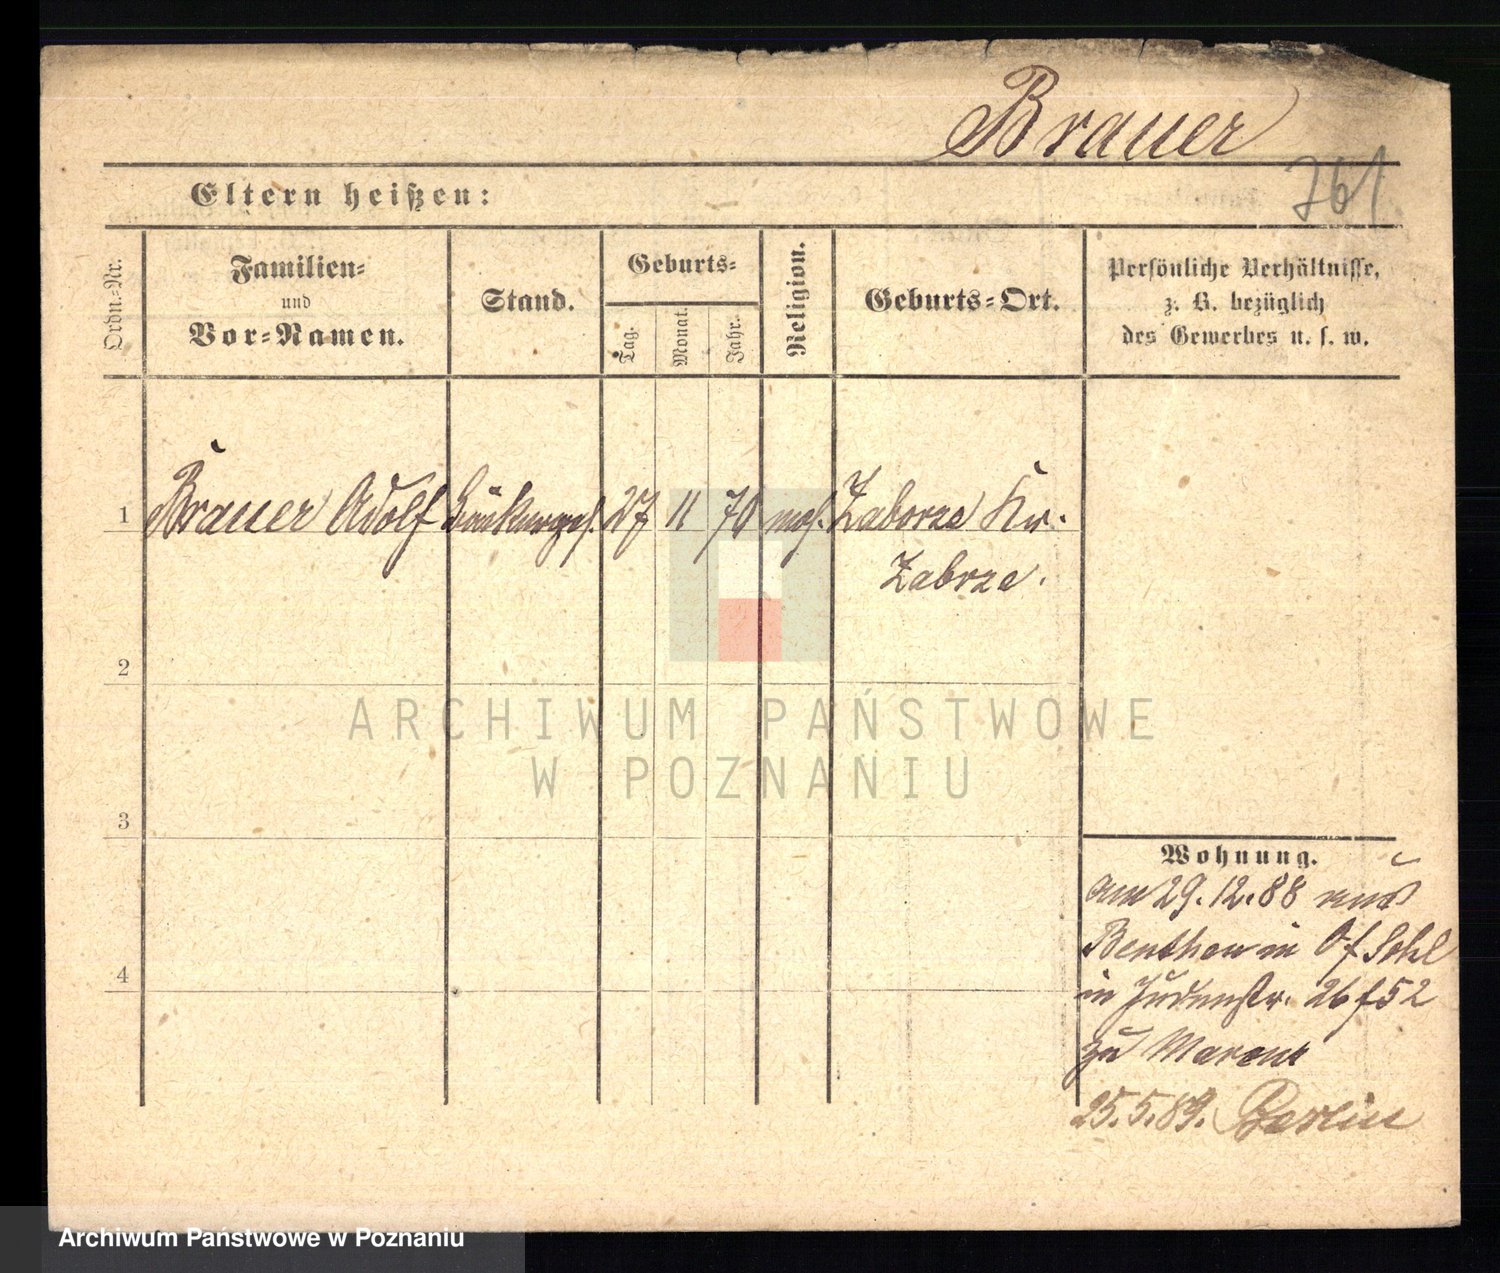 Brauer
761
Eltern heißen:
Ordn.-Nr.
Familien-
und
Vor-Namen.
Stand.
Geburts-
Tag.
Monat.
Jahr.
Religion.
Geburts-Ort.
Persönliche Verhältnisse,
z. B. bezüglich
des Gewerbes u. s. w.
1 Brauer Adolf 27 11 70 Zaborze Kr.
Zabrze.
2
3
4
Wohnung.
am 29.12.88 aus
Beuthen in
in Judenstr. 26
zu
25.5.89. Berlin
ARCHIWUM PAŃSTWOWE
W POZNANIU
Archiwum Państwowe w Poznaniu